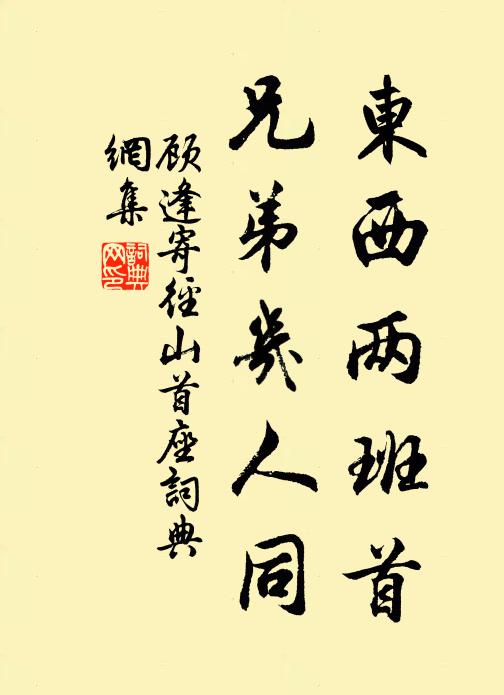 東西两班首
兄弟幾人同
顾逢寄徑山首座詞典
網集
詞典
网印